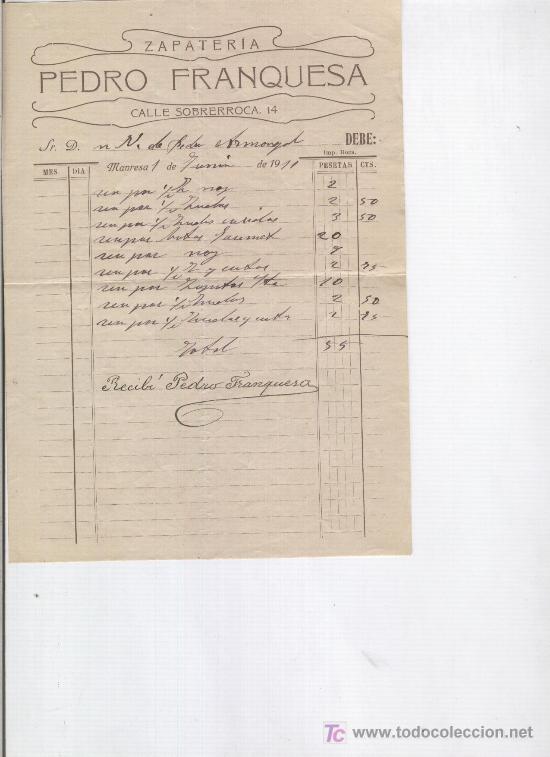 ZAPATERÍA
PEDRO FRANQUESA
CALLE SOBRERROCA, 14
Sr. D. de DEBE:
Imp. Roca.
MES DIA Manresa 1 de Junio de 1911 PESETAS CTS.
un par 1/2 noy 2
un par 1/2 suelas 2 50
un par 1/2 suelas cosidas 3 50
un par botas 20
un par noy 7
un par 1/2 y 2 75
un par 10
un par 1/2 suelas 2 50
un par 1/2 y 2 75
Total 55
Recibí Pedro Franquesa
TC www.todocoleccion.net